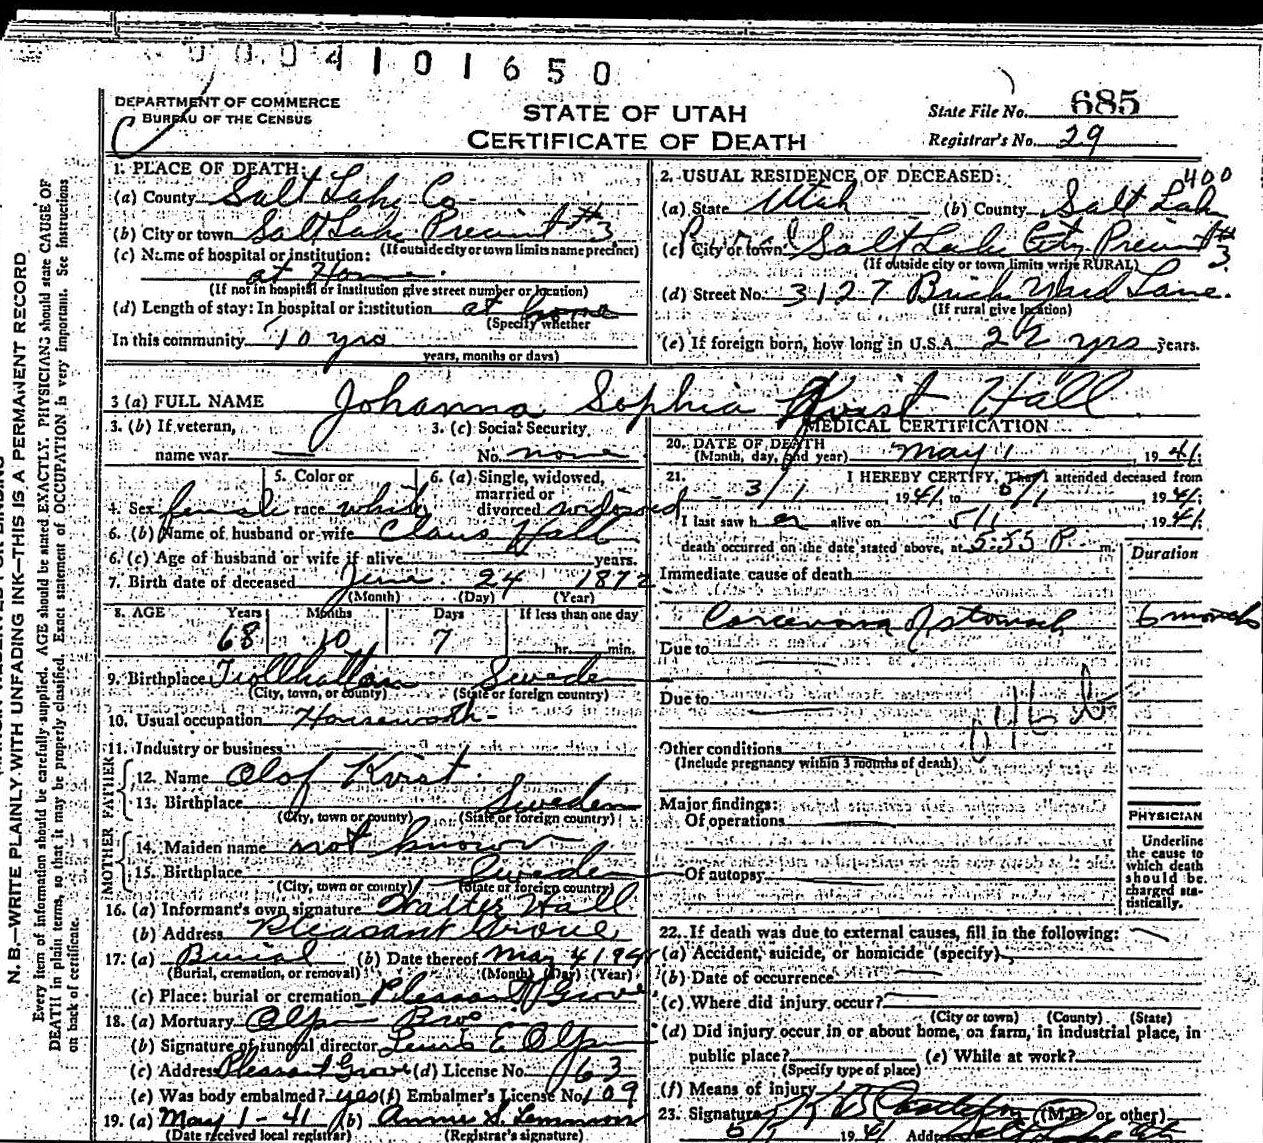 0004101650
DEPARTMENT OF COMMERCE
BUREAU OF THE CENSUS
STATE OF UTAH
CERTIFICATE OF DEATH
State File No. 685
Registrar's No. 29
N. B.—WRITE PLAINLY WITH UNFADING INK—THIS IS A PERMANENT RECORD
Every item of information should be carefully supplied. AGE should be stated EXACTLY. PHYSICIANS should state CAUSE OF
DEATH in plain terms, so that it may be properly classified. Exact statement of OCCUPATION is very important. See instructions
on back of certificate.
1. PLACE OF DEATH:
(a) County Salt Lake Co
(b) City or town Salt Lake Precinct #3
(If outside city or town limits name precinct)
(c) Name of hospital or institution:
at Home
(If not in hospital or institution give street number or location)
(d) Length of stay: In hospital or institution at home
(Specify whether
In this community 10 yrs
years, months or days)
2. USUAL RESIDENCE OF DECEASED: 400
(a) State Utah (b) County Salt Lake
(c) City or town Rural Salt Lake City Precinct #3
(If outside city or town limits write RURAL)
(d) Street No. 3127 Brick Yard Lane.
(If rural give location)
(e) If foreign born, how long in U.S.A. yrs years.
3 (a) FULL NAME Johanna Sophia Kvist Hall
3. (b) If veteran,
name war
3. (c) Social Security
No. none
4. Sex female
5. Color or
race white
6. (a) Single, widowed,
married or
divorced widowed
6. (b) Name of husband or wife Claus Hall
6. (c) Age of husband or wife if alive years.
7. Birth date of deceased June 24 1872
(Month) (Day) (Year)
8. AGE Years Months Days If less than one day
68 10 7 hr. min.
9. Birthplace Trollhattan Sweden
(City, town, or county) (State or foreign country)
10. Usual occupation Housework
11. Industry or business
FATHER
12. Name Olof Kvist
13. Birthplace Sweden
(City, town or county) (State or foreign country)
MOTHER
14. Maiden name not known
15. Birthplace Sweden
(City, town or county) (State or foreign country)
16. (a) Informant's own signature Walter Hall
(b) Address Pleasant Grove
17. (a) Burial (b) Date thereof May 4 1941
(Burial, cremation, or removal) (Month) (Day) (Year)
(c) Place: burial or cremation Pleasant Grove
18. (a) Mortuary Olpin Bros
(b) Signature of funeral director Lewis E Olpin
(c) Address Pleasant Grove (d) License No. 163
(e) Was body embalmed? yes (f) Embalmer's License No. 109
19. (a) May 1-41 (b) Annie S. Lemmon
(Date received local registrar) (Registrar's signature)
MEDICAL CERTIFICATION
20. DATE OF DEATH
(Month, day, and year) May 1, 1941
21. I HEREBY CERTIFY, That I attended deceased from
3/1 1941 to 5/1 1941
I last saw her alive on 5/1, 1941
death occurred on the date stated above, at 5:55 P. m.
Duration
Immediate cause of death
Carcinoma of stomach 6 months
Due to
Due to
Other conditions
(Include pregnancy within 3 months of death)
Major findings:
Of operations
Of autopsy
PHYSICIAN
Underline
the cause to
which death
should be
charged sta-
tistically.
22. If death was due to external causes, fill in the following:
(a) Accident, suicide, or homicide (specify)
(b) Date of occurrence
(c) Where did injury occur?
(City or town) (County) (State)
(d) Did injury occur in or about home, on farm, in industrial place, in
public place? (e) While at work?
(Specify type of place)
(f) Means of injury
23. Signature (M.D. or other)
5/1 1941 Address Salt Lake City